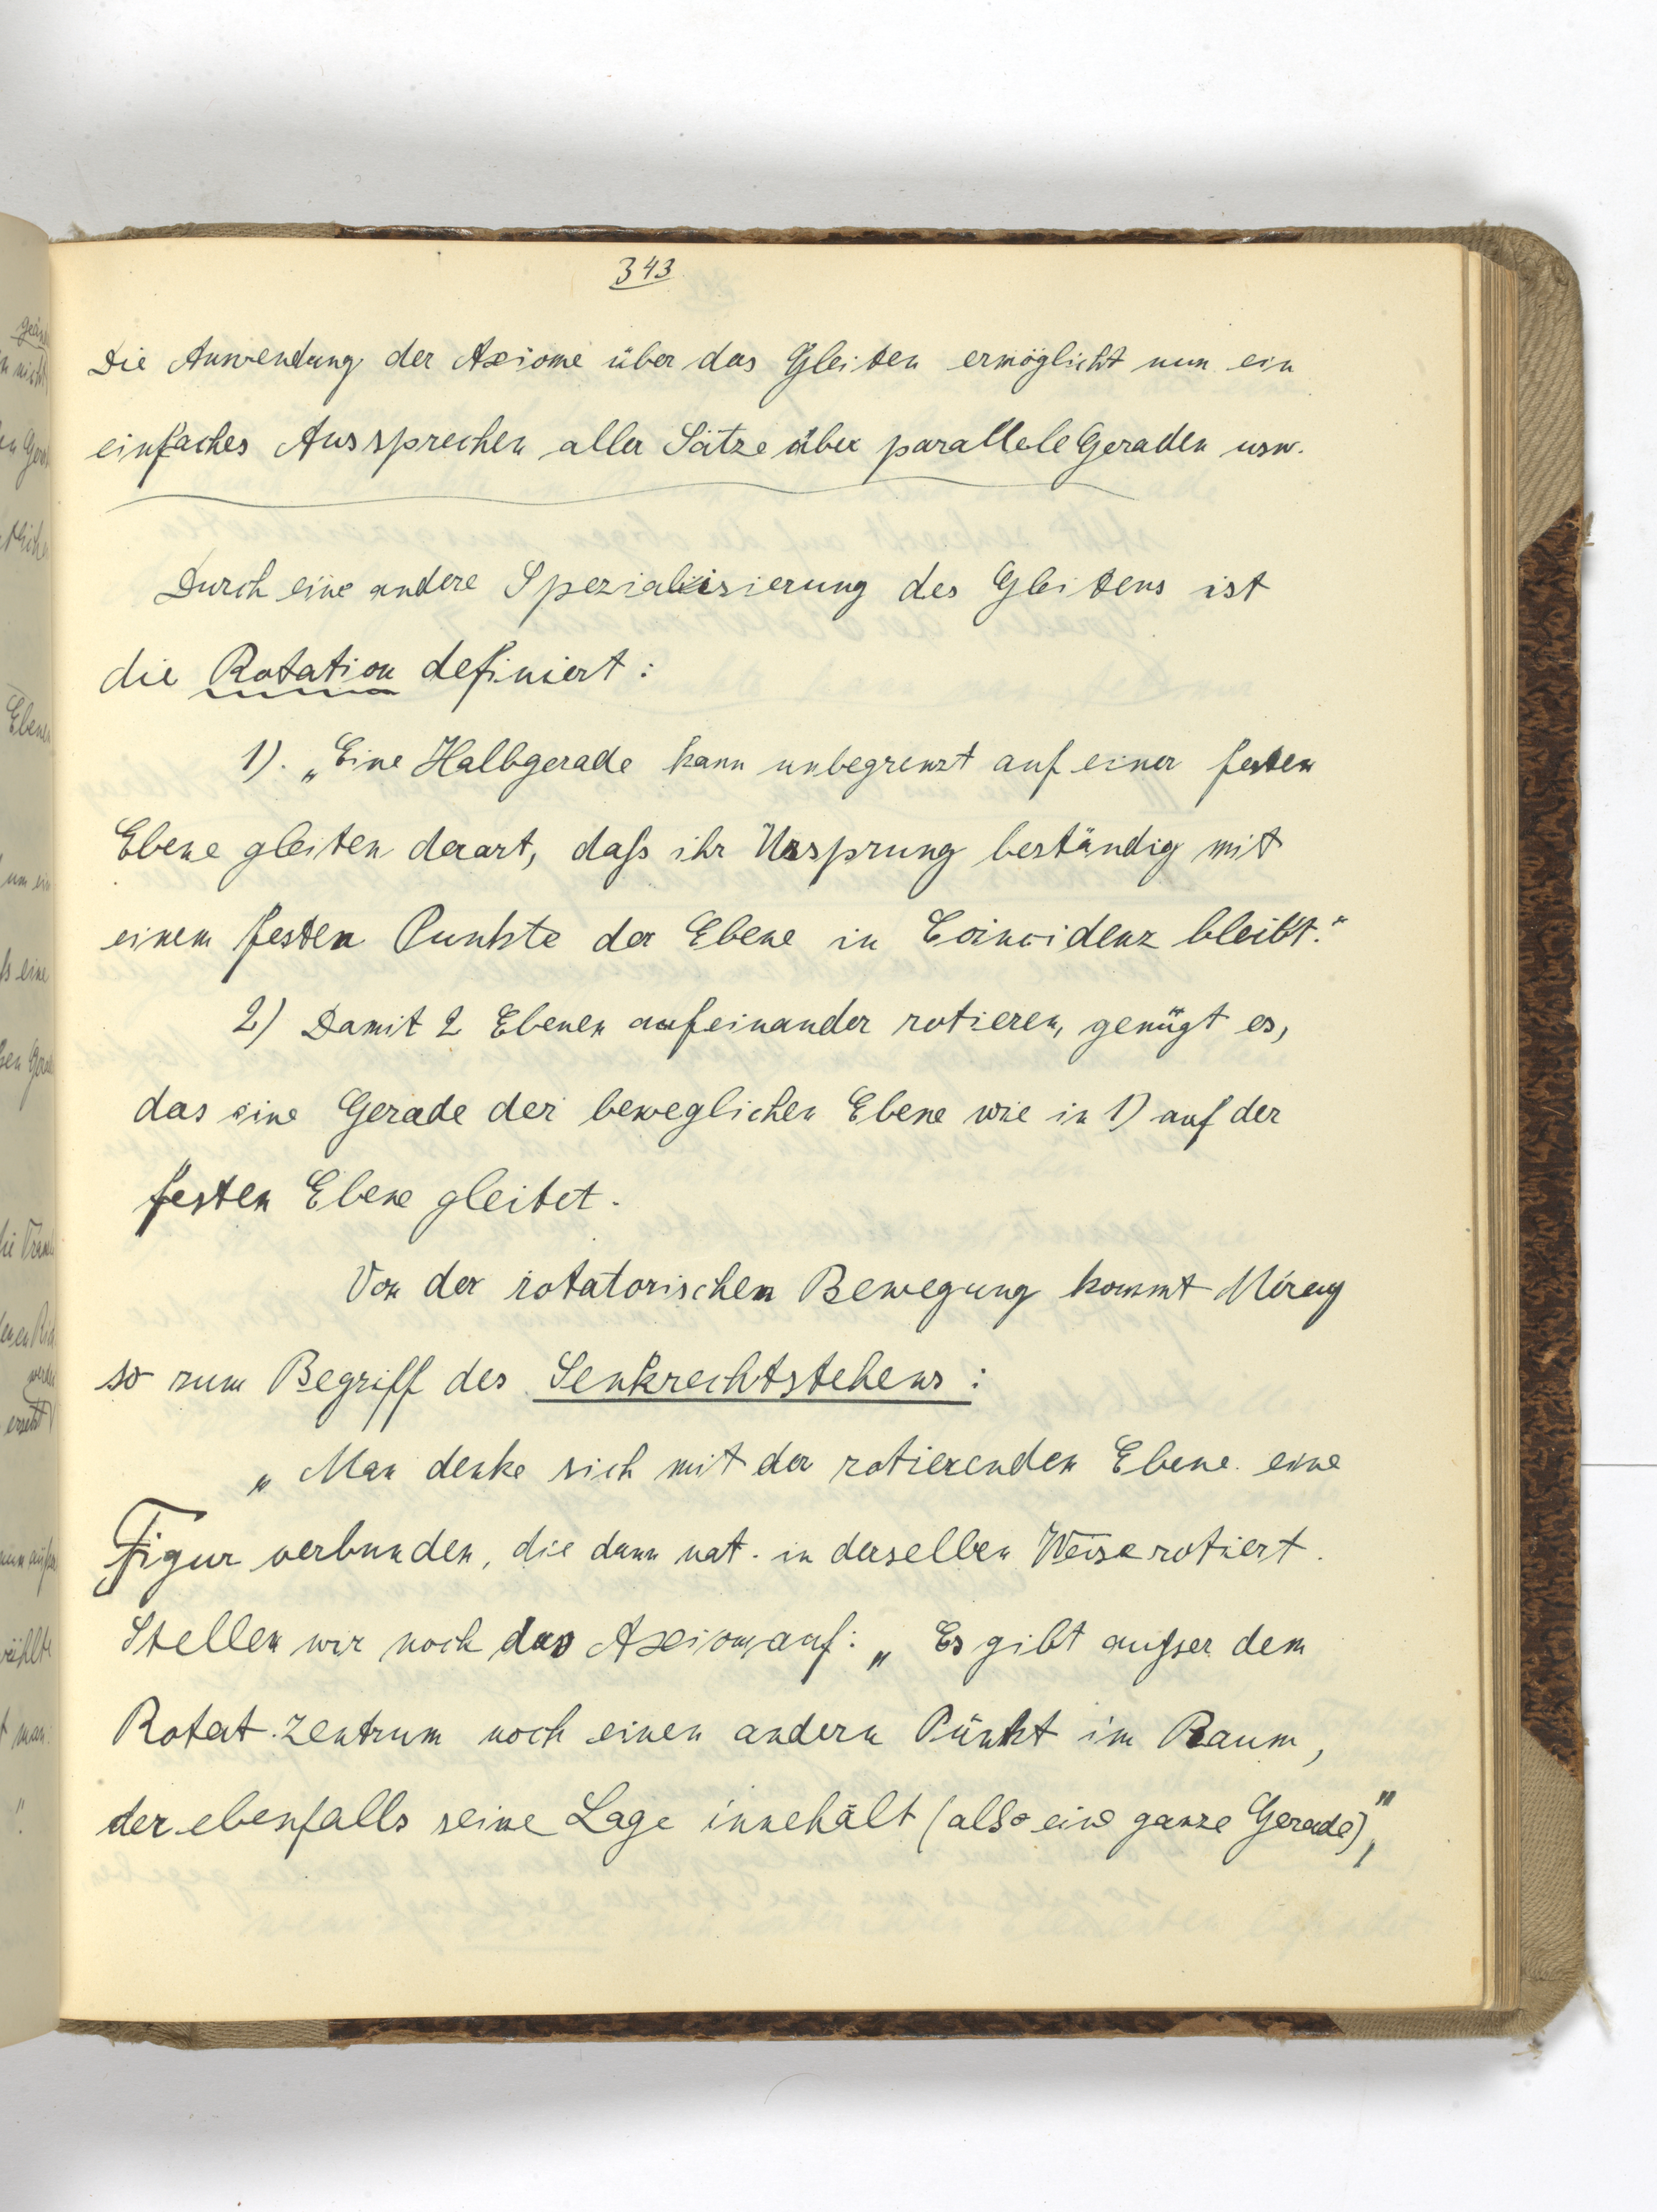 343
Die Anwendung der Axiome über das Gleiten ermöglicht nun ein
einfaches Aussprechen aller Sätze über parallele Geraden usw.
Durch eine andere Spezialisierung des Gleitens ist
die Rotation definiert:
1). „Eine Halbgerade kann unbegrenzt auf einer festen
Ebene gleiten derart, daß ihr Ursprung beständig mit
einem festen Punkte der Ebene in Coincidenz bleibt."
2) Damit 2 Ebenen aufeinander rotieren, genügt es,
das eine Gerade der beweglichen Ebene wie in 1) auf der
festen Ebene gleitet.
Von der rotatorischen Bewegung kommt Méray
so zum Begriff des Senkrechtstehens:
„Man denke sich mit der rotierenden Ebene eine
Figur verbunden, die dann nat. in derselben Weise rotiert.
Stellen wir noch das Axiom auf: „Es gibt außer dem
Rotat. zentrum noch einen andern Punkt im Raum,
der ebenfalls seine Lage innehält (also eine ganze Gerade)",